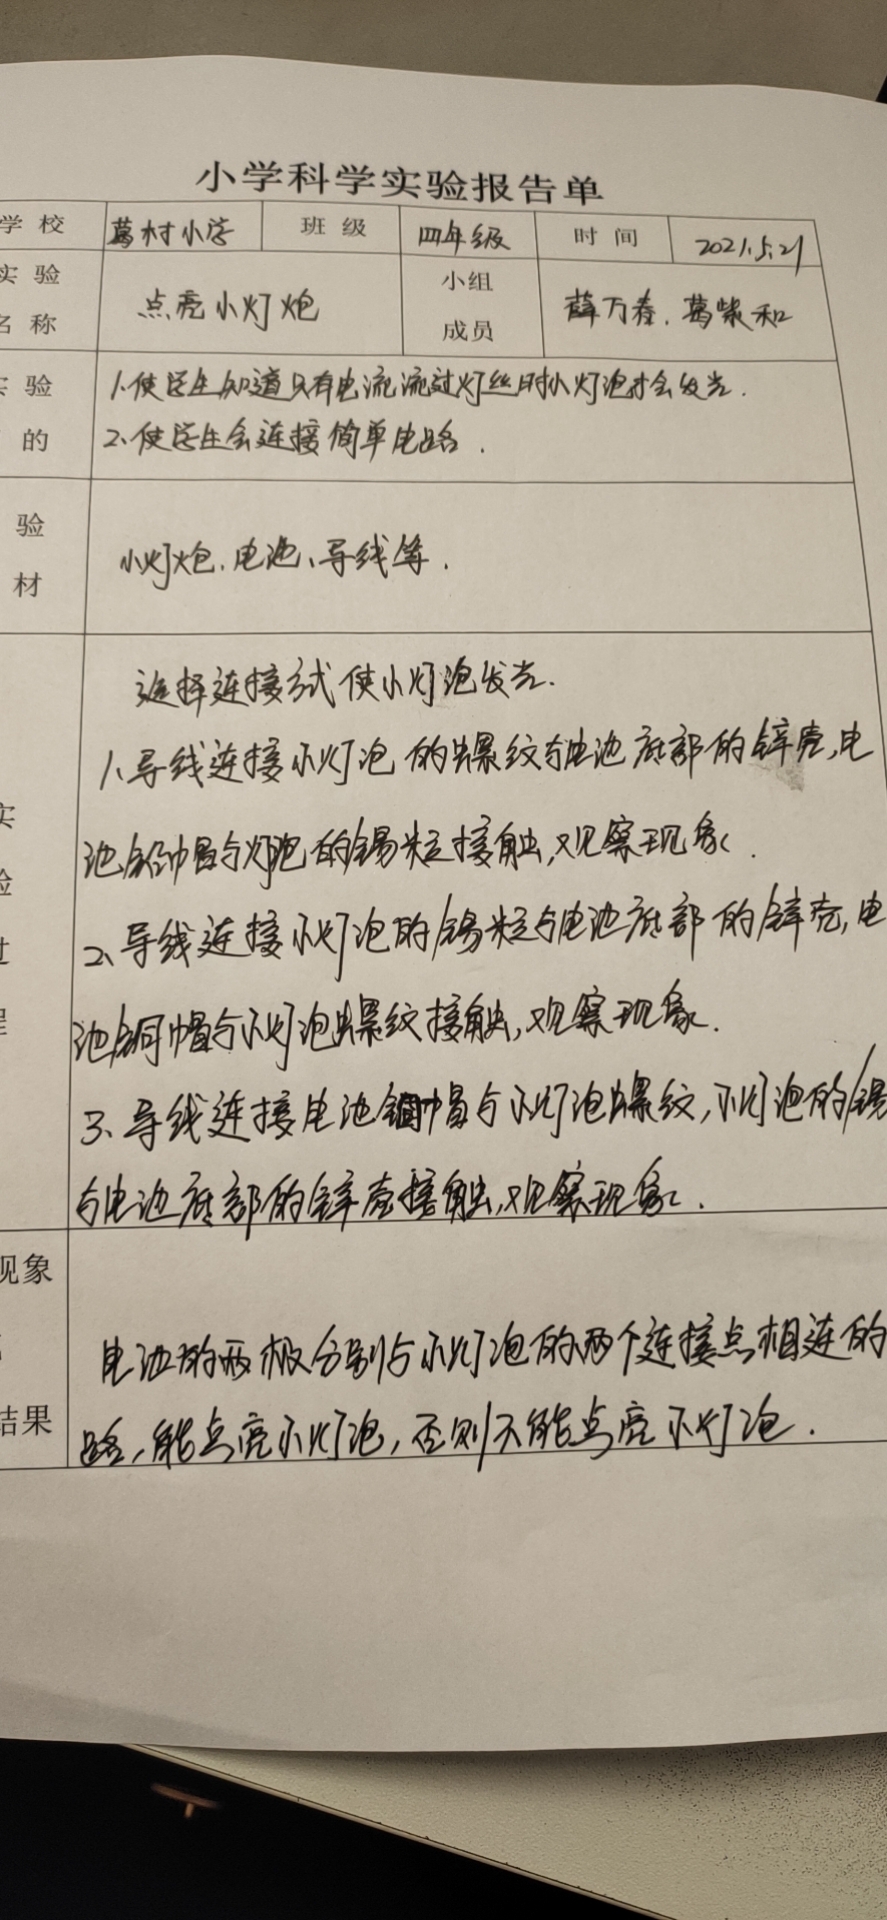 小学科学实验报告单
学校 葛村小学 班级 四年级 时间 2021.5.21
实验 小组
点亮小灯炮 薛万春、葛紫和
名称 成员
实验 1、使学生知道只有电流流过灯丝时小灯泡才会发光.
的 2、使学生会连接简单电路.
验
小灯炮、电池、导线等.
材
选择连接方式使小灯泡发光.
1、导线连接小灯泡的螺纹与电池底部的锌壳,电
池铜帽与灯泡的锡粒接触,观察现象.
2、导线连接小灯泡的锡粒与电池底部的锌壳,电
池铜帽与小灯泡螺纹接触,观察现象.
3、导线连接电池铜帽与小灯泡螺纹,小灯泡的锡
与电池底部的锌壳接触,观察现象.
实
验
过
程
现象
电池的两极分别与小灯泡的两个连接点相连的
结果
路,能点亮小灯泡,否则不能点亮小灯泡.